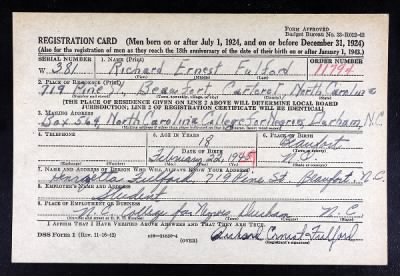 FORM APPROVED
Budget Bureau No. 33-R012-42
REGISTRATION CARD—(Men born on or after July 1, 1924, and on or before December 31, 1924)
(Also for the registration of men as they reach the 18th anniversary of the date of their birth on or after January 1, 1943.)
SERIAL NUMBER 1. NAME (Print) ORDER NUMBER
W 381 Richard Ernest Fulford 11792
(First) (Middle) (Last)
2. PLACE OF RESIDENCE (Print)
719 Pine St., Beaufort, Carteret, North Carolina
[THE PLACE OF RESIDENCE GIVEN ON LINE 2 ABOVE WILL DETERMINE LOCAL BOARD
JURISDICTION; LINE 2 OF REGISTRATION CERTIFICATE WILL BE IDENTICAL]
3. MAILING ADDRESS
Box 564 North Carolina College for Negroes Durham, N.C.
4. TELEPHONE 5. AGE IN YEARS 6. PLACE OF BIRTH
18 Beaufort
DATE OF BIRTH
February 22, 1925 N.C.
7. NAME AND ADDRESS OF PERSON WHO WILL ALWAYS KNOW YOUR ADDRESS
Fulford, 719 Pine St. Beaufort, N.C.
8. EMPLOYER'S NAME AND ADDRESS
Student
9. PLACE OF EMPLOYMENT OR BUSINESS
N.C. College for Negroes Durham N.C.
I AFFIRM THAT I HAVE VERIFIED ABOVE ANSWERS AND THAT THEY ARE TRUE.
DSS Form 1 (Rev. 11-16-42) (OVER) Richard Ernest Fulford
(Registrant's signature)